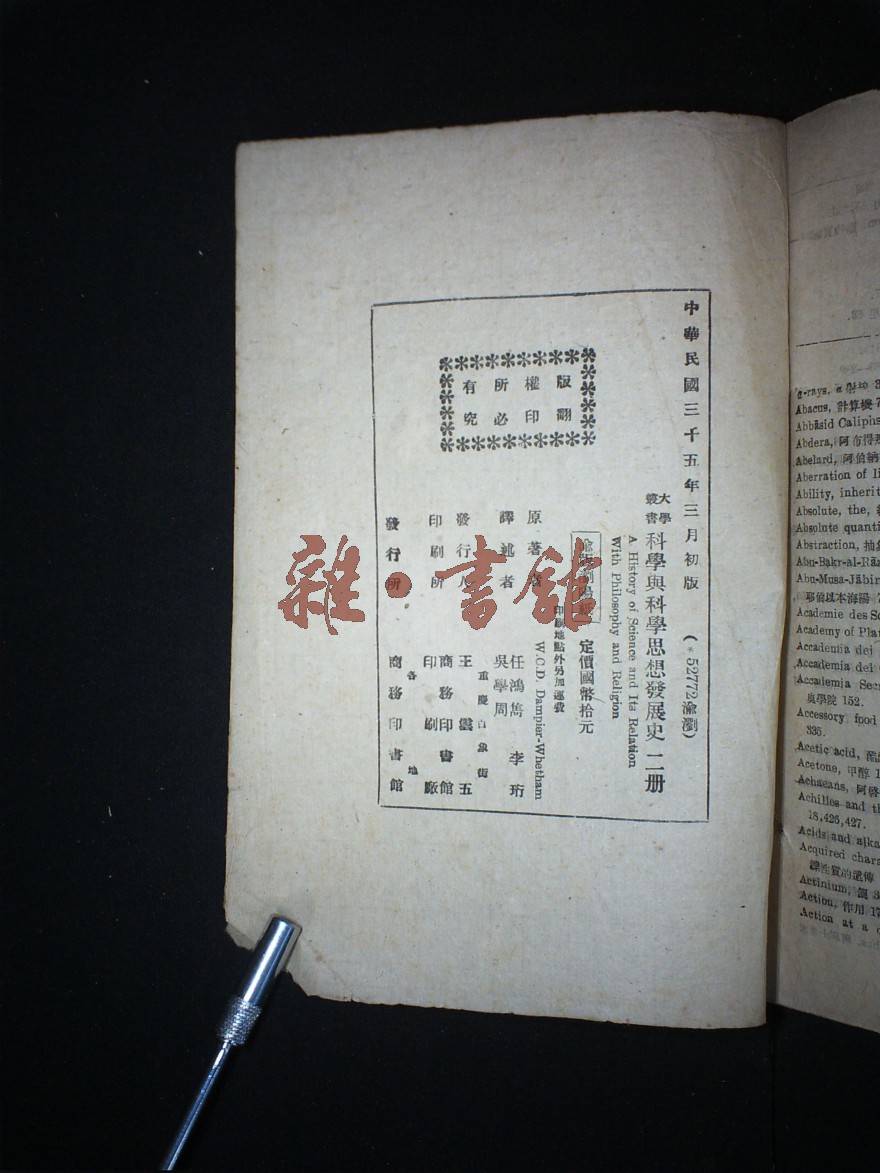 中華民國三十五年三月初版
(*52772渝瀏)
大學叢書
科學與科學思想發展史 二册
A History of Science and Its Relation
With Philosophy and Religion
定價國幣拾元
印刷地點外另加運費
原著者
W.C.D. Dampier-Whetham
譯述者
任鴻雋 李珩
吳學周
重慶白象街
發行人
王雲五
印刷所
商務印書館
印刷廠
各地
發行所
商務印書館
版權所有
翻印必究
雜·書館
α-rays, α射線
Abacus, 計算機 7
Abbāsid Caliphs
Abdera, 阿布得
Abelard, 阿伯納
Aberration of li
Ability, inherit
Absolute, the,
Absolute quanti
Abstraction, 抽
Abu-Bakr-al-Rā
Abu-Musa-Jābir
Academie des Sc
Academy of Plat
Accademia dei
Accademia dei
Accademia Secr
奥學院 152.
Accessory food
335.
Acetic acid,
Acetone, 甲醇 1
Achaeans, 阿
Achilles and th
18,426,427.
Acids and alka
Acquired chara
性質的遺傳
Actinium,
Action, 作用 17
Action at a d